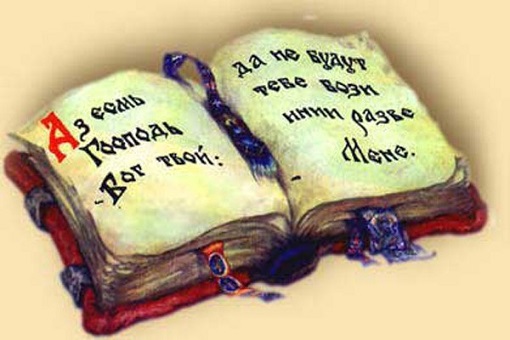 Аз есмь
Господь
Бог твой:
да не будут
тебе бози
инии разве
Мене.